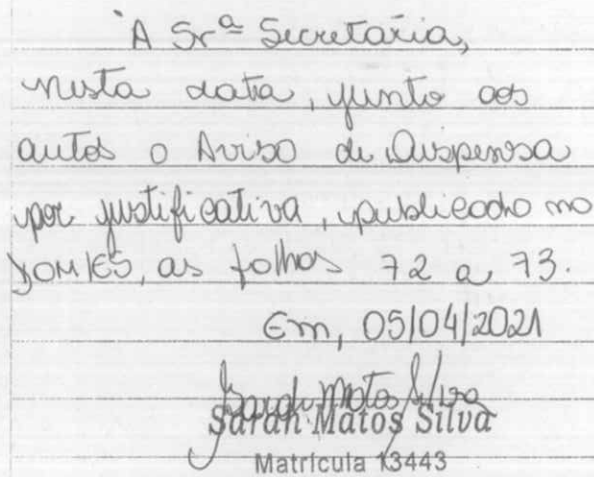 À Srª Secretária,
nesta data, junto aos
autos o Aviso de Dispensa
por justificativa, publicado no
DOM/ES, as folhas 72 a 73.
Em, 05/04/2021
Sarah Matos Silva
Sarah Matos Silva
Matrícula 13443